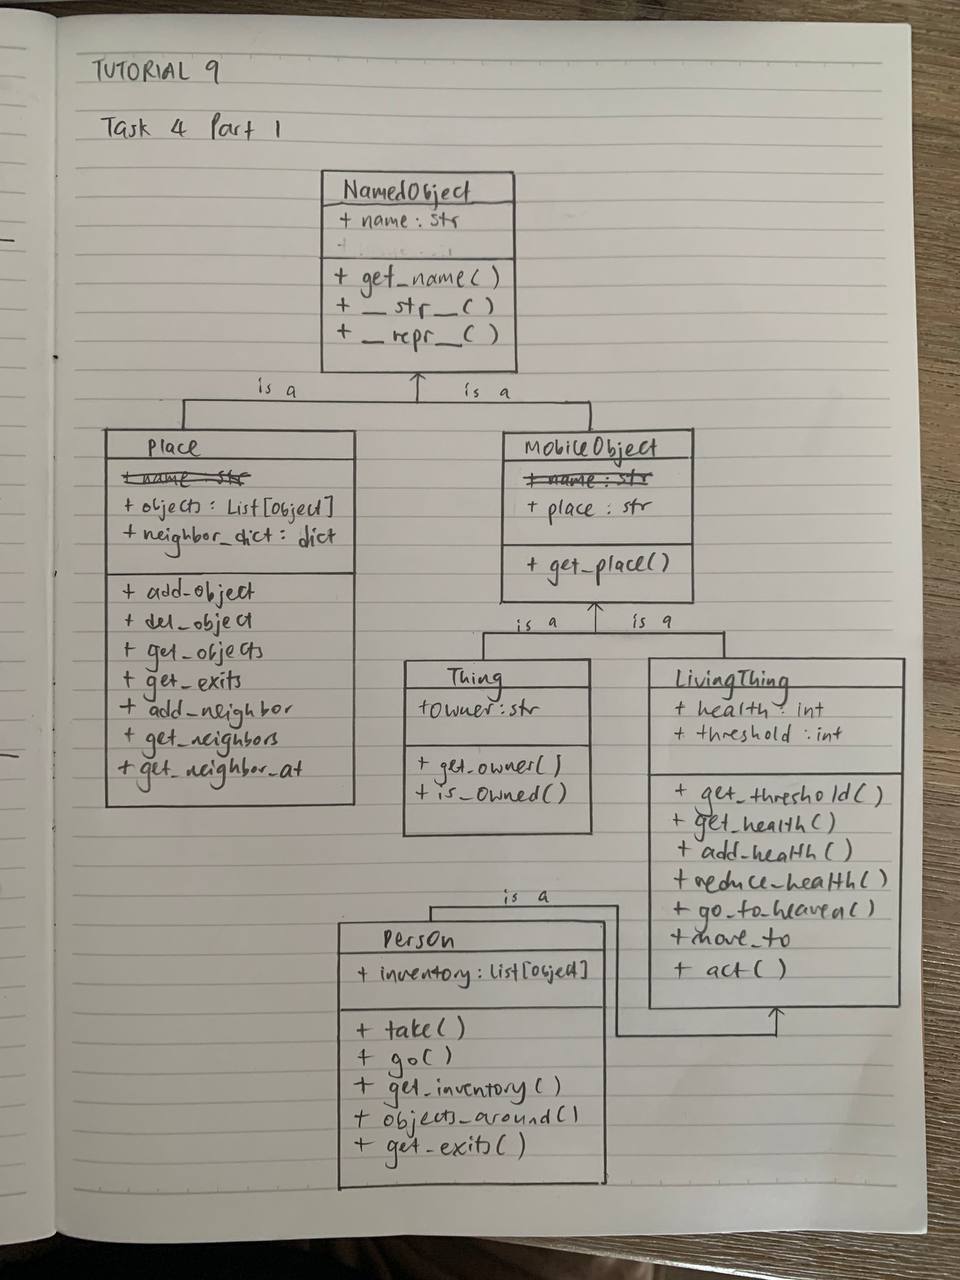 TUTORIAL 9
Task 4 Part 1
NamedObject
+ name : str
+ get_name()
+ __str__()
+ __repr__()
is a
is a
Place
+ name : str
+ objects : List[Object]
+ neighbor_dict : dict
+ add_object
+ del_object
+ get_objects
+ get_exits
+ add_neighbor
+ get_neighbors
+ get_neighbor_at
MobileObject
+ name : str
+ place : str
+ get_place()
is a
is a
Thing
+ owner : str
+ get_owner()
+ is_owned()
LivingThing
+ health : int
+ threshold : int
+ get_threshold()
+ get_health()
+ add_health()
+ reduce_health()
+ go_to_heaven()
+ move_to
+ act()
is a
Person
+ inventory : List[Object]
+ take()
+ go()
+ get_inventory()
+ objects_around()
+ get_exits()